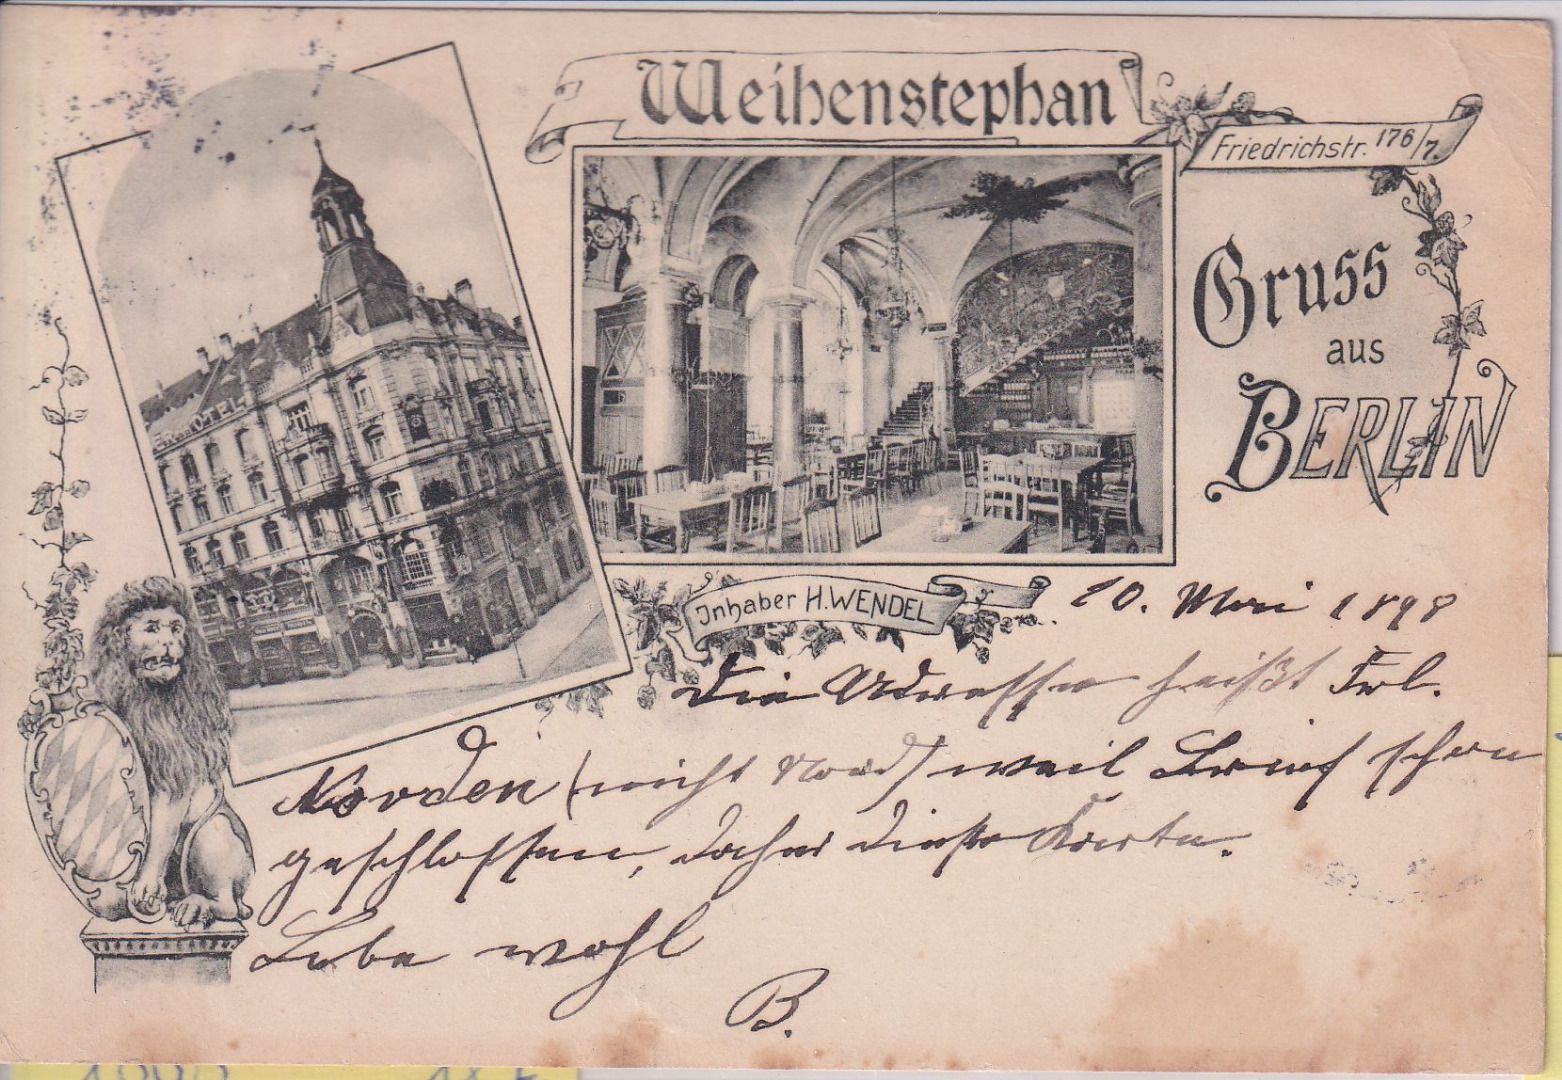 Weihenstephan
Friedrichstr. 176/7.
Gruss
aus
BERLIN
HOTEL
Inhaber H. WENDEL
20. Mai 1898
Die Adresse heißt Frl.
Norden (nicht Nord) weil Brief schon
geschlossen, daher diese Karte.
Lebe wohl
B.